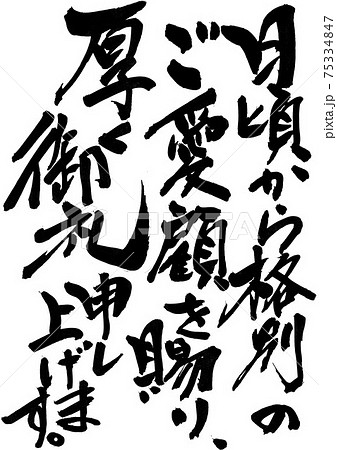 日頃から格別の
ご愛顧を賜り、
厚く御礼
申し
上げます。
PIXTA
pixta.jp - 75334847